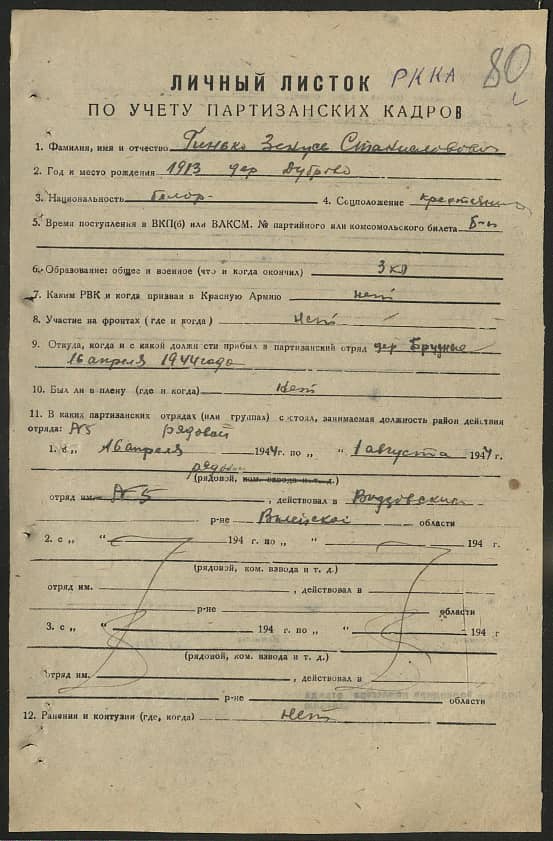 РККА 80
ЛИЧНЫЙ ЛИСТОК
ПО УЧЕТУ ПАРТИЗАНСКИХ КАДРОВ
1. Фамилия, имя и отчество Гинько Станиславович
2. Год и место рождения 1913 дер Дуброво
3. Национальность белор- 4. Соцположение крестьянин
5. Время поступления в ВКП(б) или ВЛКСМ. № партийного или комсомольского билета б-п
6. Образование: общее и военное (что и когда окончил) 3 кл
7. Каким РВК и когда призван в Красную Армию нет
8. Участие на фронтах (где и когда) нет
9. Откуда, когда и с какой должн сти прибыл в партизанский отряд дер
16 апреля 1944 года
10. Был ли в плену (где и когда) нет
11. В каких партизанских отрядах (или группах) состоял, занимаемая должность район действия
отряда: №5 рядовой
1. с „ 16 апреля 1944г. по „ “ 1 августа 1944 г.
рядовой
(рядовой, ком. взвода и т. д.)
отряд им. №5, действовал в Видзовский
р-не Вилейской области
2. с „ “ 194 г. по „ “ 194 г.
(рядовой, ком. взвода и т. д.)
отряд им. , действовал в
р-не области
3. с „ “ 194 г. по „ “ 194 г
(рядовой, ком. взвода и т. д.)
отряд им. , действовал в
р-не области
12. Ранения и контузии (где, когда) нет